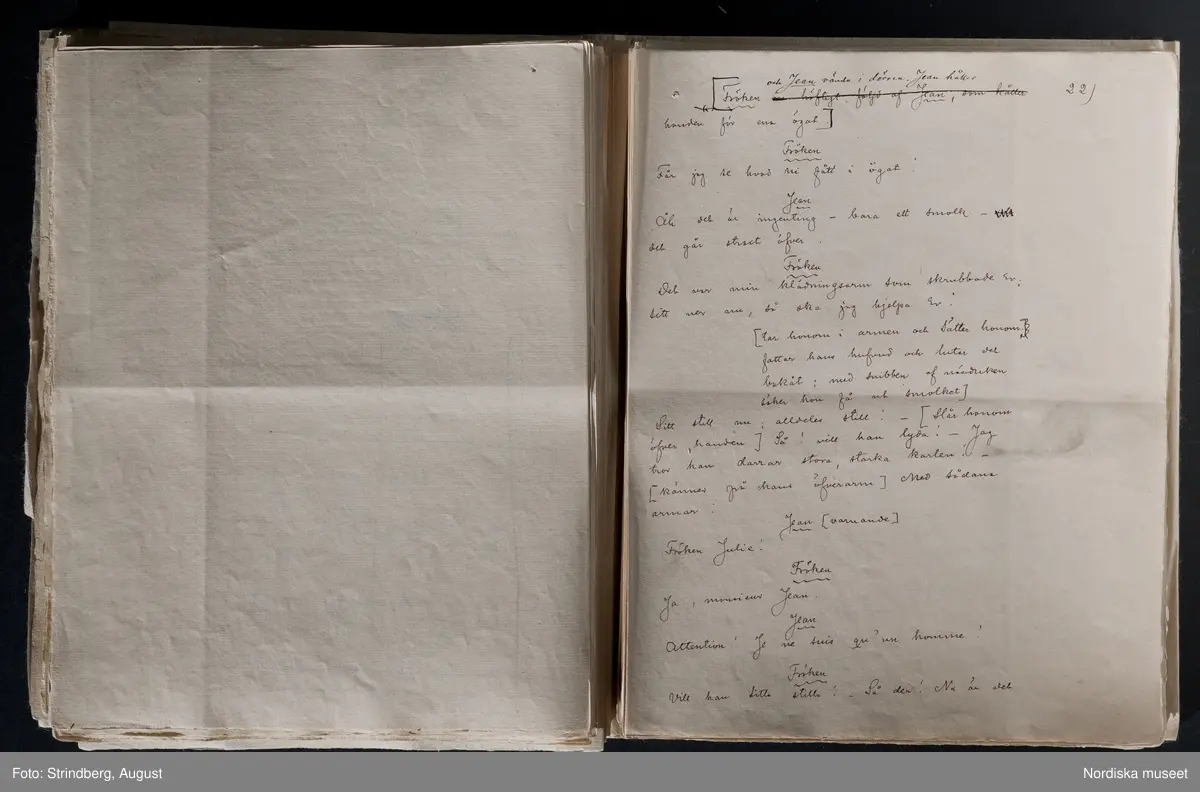 och Jean vända i dörren. Jean håller
[Fröken höfligt följd af Jean, som håller 22)
handen för ena ögat.]
Fröken
Får jag se hvad ni fått i ögat!
Jean
Åh det är ingenting – bara ett smolk –
det går strax öfver.
Fröken
Det var min klädningsarm som skrubbade Er,
sitt ner nu, så ska jag hjelpa Er!
[tar honom i armen och sätter honom,
fattar hans hufvud och lutar det
bakåt; med snibben af näsduken
söker hon få ut smolket]
Sitt still nu; alldeles still! – [Slår honom
öfver handen] Så! vill han lyda! – Jag
tror han darrar stora, starka karlen! –
[känner på hans öfverarm] Med sådana
armar!
Jean [varnande]
Fröken Julie!
Fröken
Ja, monsieur Jean.
Jean
Attention! Je ne suis qu'un homme!
Fröken
Vill han sitta stilla! – Så der! Nu är det
Foto: Strindberg, August
Nordiska museet